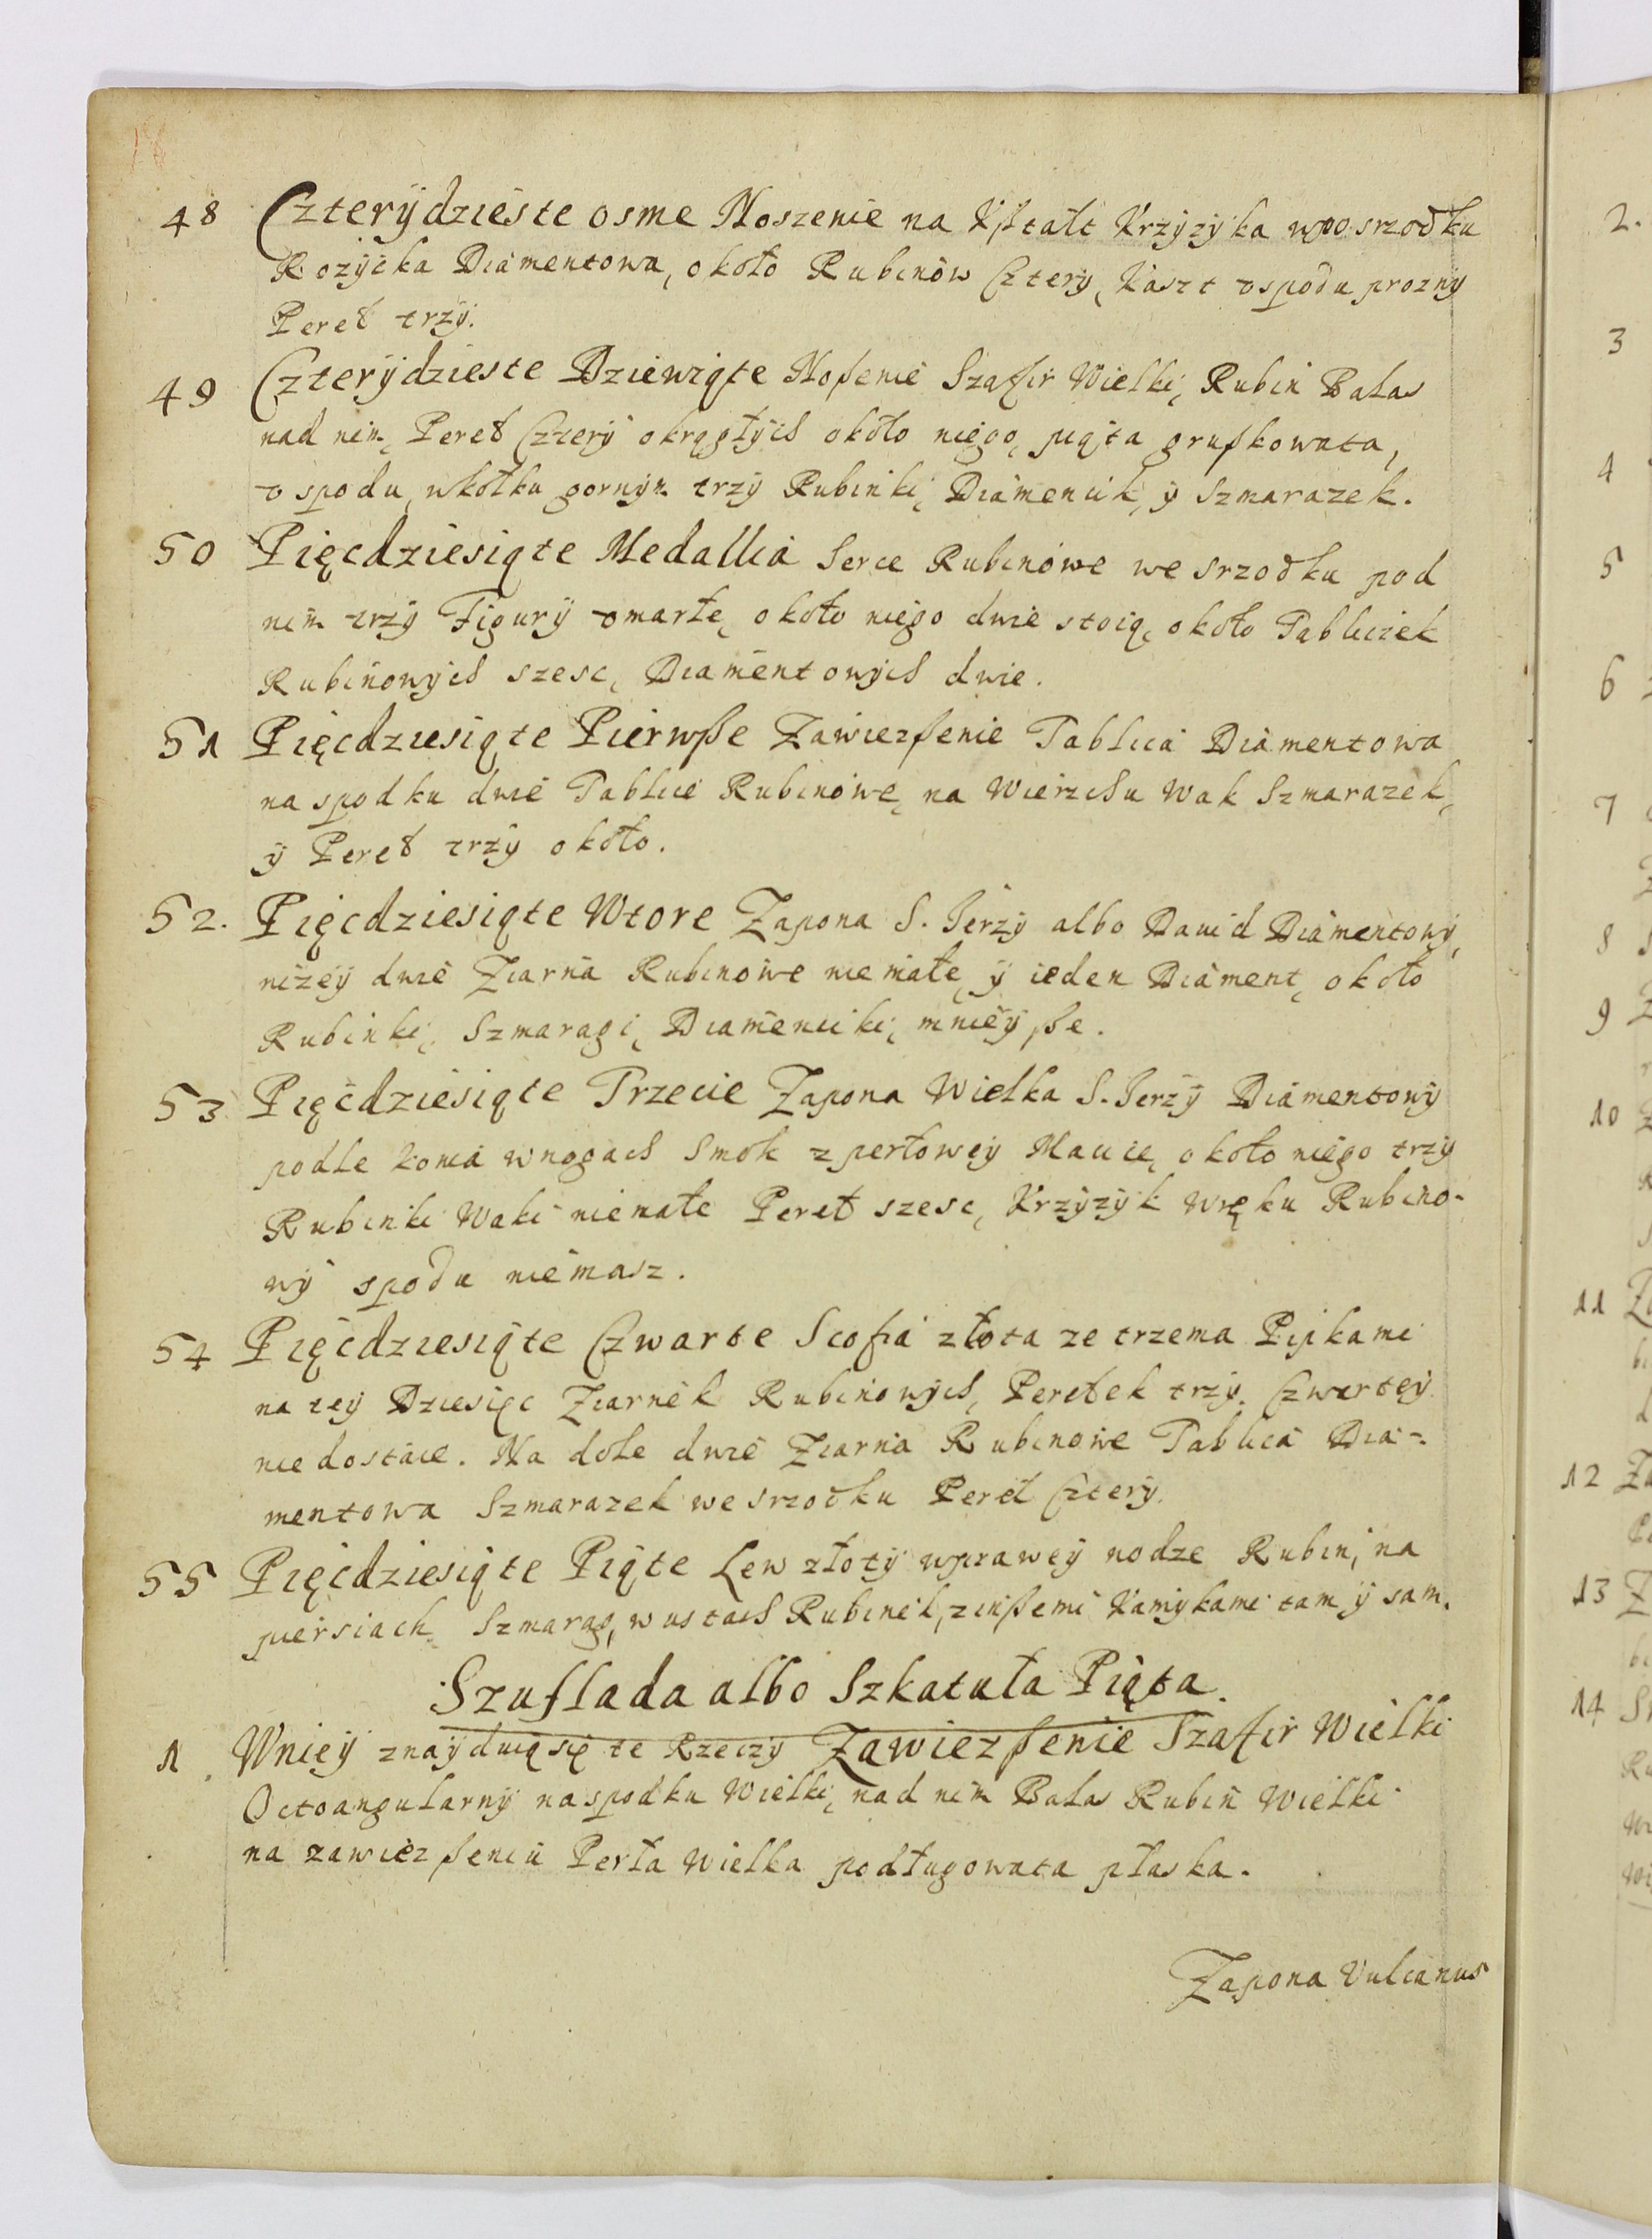 48 Czterÿdzieste osme Noszenie na Kształt Krzyżyka wposrzodku
Rożyczka Diamentowa, około Rubinow Cztery, Kaszt vspodu prozny
Pereł trzy.
49 Czterÿdzieste Dziewiąte Noszenie Szafir Wielki, Rubin Balas
nad nim, Pereł Cztery okrągłych około niego, piąta gruszkowata,
v spodu, wkołku gornym trzy Rubinki, Diamencik, y Szmarazek.
50 Pięcdziesiąte Medallia Serce Rubinowe we srzodku pod
nim trzy Figury vmarłe, około niego dwie stoią, około Tabliczek
Rubinowych szesc, Diamentowych dwie.
51 Pięcdziesiąte Pierwsze Zawieszenie Tablica Diamentowa
na spodku dwie Tablice Rubinowe, na Wierzchu Wak Szmarazek,
y Pereł trzy około.
52. Pięcdziesiąte Wtore Zapona S. Jerzy albo Dawid Diamentowy,
niżey dwie Ziarna Rubinowe niemałe, y ieden Diament, około
Rubinki, Szmaragi, Diamenciki, mnieysze.
53 Pięcdziesiąte Trzecie Zapona Wielka S. Jerzy Diamentowy
podle konia wnogach Smok z perłowey Macice, około niego trzy
Rubinki Waki niemałe Pereł szesc, Krzyżyk wręku Rubino-
wy spodu niemasz.
54 Pięcdziesiąte Czwarte Scofia złota ze trzema Pipkami
na tey Dziesięc Ziarnek Rubinowych, Perełek trzy. Czwartey
nie dostaie. Na dole dwie Ziarna Rubinowe Tablica Dia-
mentowa Szmarazek we srzodku Pereł Cztery.
55 Pięcdziesiąte Piąte Lew złoty wprawey nodze Rubin, na
piersiach Szmarag, w ustach Rubinek, z inszemi Kamykami tam y sam.
Szuflada albo Szkatuła Piąta.
1 Wniey znayduią się te Rzeczy Zawieszenie Szafir Wielki
Octoangularny na spodku Wielki, nad nim Balas Rubin Wielki
na zawieszeniu Perła Wielka podługowata płaska.
Zapona Vulcanus
2.
3
4
5
6
7
8
9
10
11
12
13
14